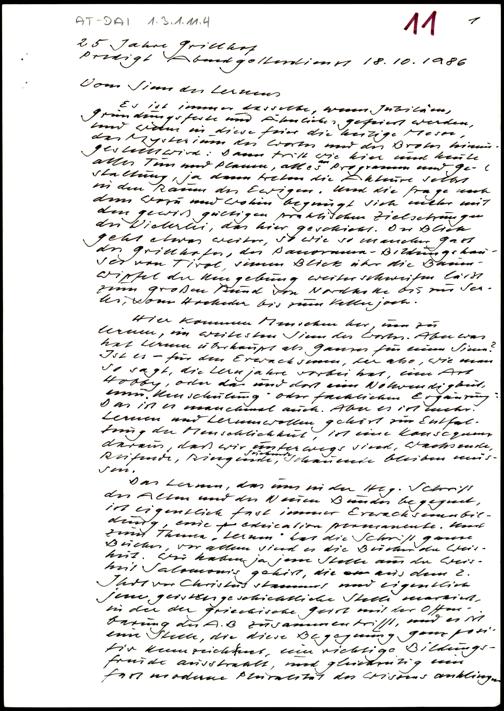 AT-DAI 1.3.1.11.4
11
1
25 Jahre Grillhof
Predigt Abendgottesdienst 18.10.1986
Vom Sinn des Lernens
Es ist immer dasselbe, wenn Jubiläen,
Gründungsfeste und Ähnliches gefeiert werden,
und wenn in diese Feier die heilige Messe,
das Mysterium des Wortes und des Brotes hinein-
gestellt wird: Dann tritt wie hier und heute
alles Tun und Planen, alles Programm und Ge-
staltung, ja dann treten die Akteure selbst
in den Raum des Ewigen. Und die Frage nach
dem Worü und Wohin begnügt sich nicht mit
den gewiß gültigen praktischen Zielsetzungen
des Vielerlei, das hier geschieht. Der Blick
geht etwas weiter, so wie so mancher Gast
des Grillhofes, des Panorama-Bildungshau-
ses von Tirol, seinen Blick über die Baum-
wipfel der Umgebung weiterschweifen läßt
zum großen Rund von Nordkette bis zur Ser-
les, vom Hocheder bis zum Kellerjoch.
Hier kommen Menschen her, um zu
lernen, im weitesten Sinn des Wortes. Aber was
hat Lernen überhaupt als Ganzes für einen Sinn?
Ist es - für den Erwachsenen, der also, wie man
so sagt, die Lernjahre vorbei hat, eine Art
Hobby, oder da und dort eine Notwendigkeit
zum Umschulung- oder fachlichen Ergänzung?
Das ist es manchmal auch. Aber es ist mehr.
Lernen und Lernenwollen gehört zur Entfal-
tung der Menschlichkeit, ist eine Konsequenz
daraus, daß wir unterwegs sind, wachsende,
Reifende, Ringende, Suchende, Schauende bleiben müs-
sen.
Das Lernen, das uns in der Hlg. Schrift
des Alten und des Neuen Bundes begegnet,
ist eigentlich fast immer Erwachsenenbil-
dung, eine educatio permanente. Und
zum Thema "Lernen" hat die Schrift ganze
Bücher, vor allem sind es die Bücher der Weis-
heit. Wir haben ja jene Stelle aus der Weis-
heit Salomons gehört, die aus dem 2.
Jhdt vor Christus stammt, und eigentlich
jene geistesgeschichtliche Stelle markiert,
in der der griechische Geist mit der Offen-
barung des A.B zusammentrifft, und es ist
eine Stelle, die diese Begegnung ganz posi-
tiv kennzeichnet, eine richtige Bildungs-
freude ausstrahlt, und gleichzeitig eine
fast moderne Pluralität des Wissens anklingen